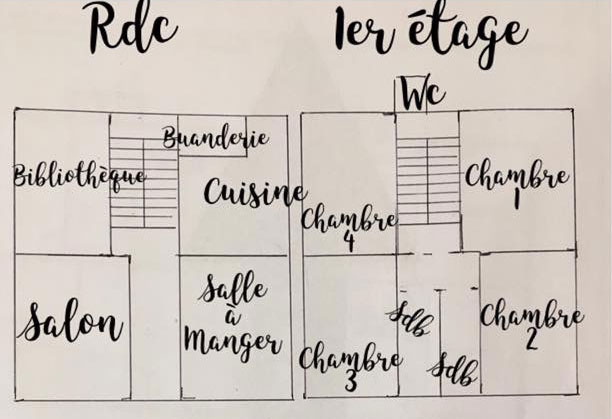 Rdc
1er étage
Wc
Buanderie
Bibliothèque
Cuisine
Chambre
4
Chambre
1
Salon
Salle
à
Manger
Chambre
3
Sdb
Sdb
Chambre
2